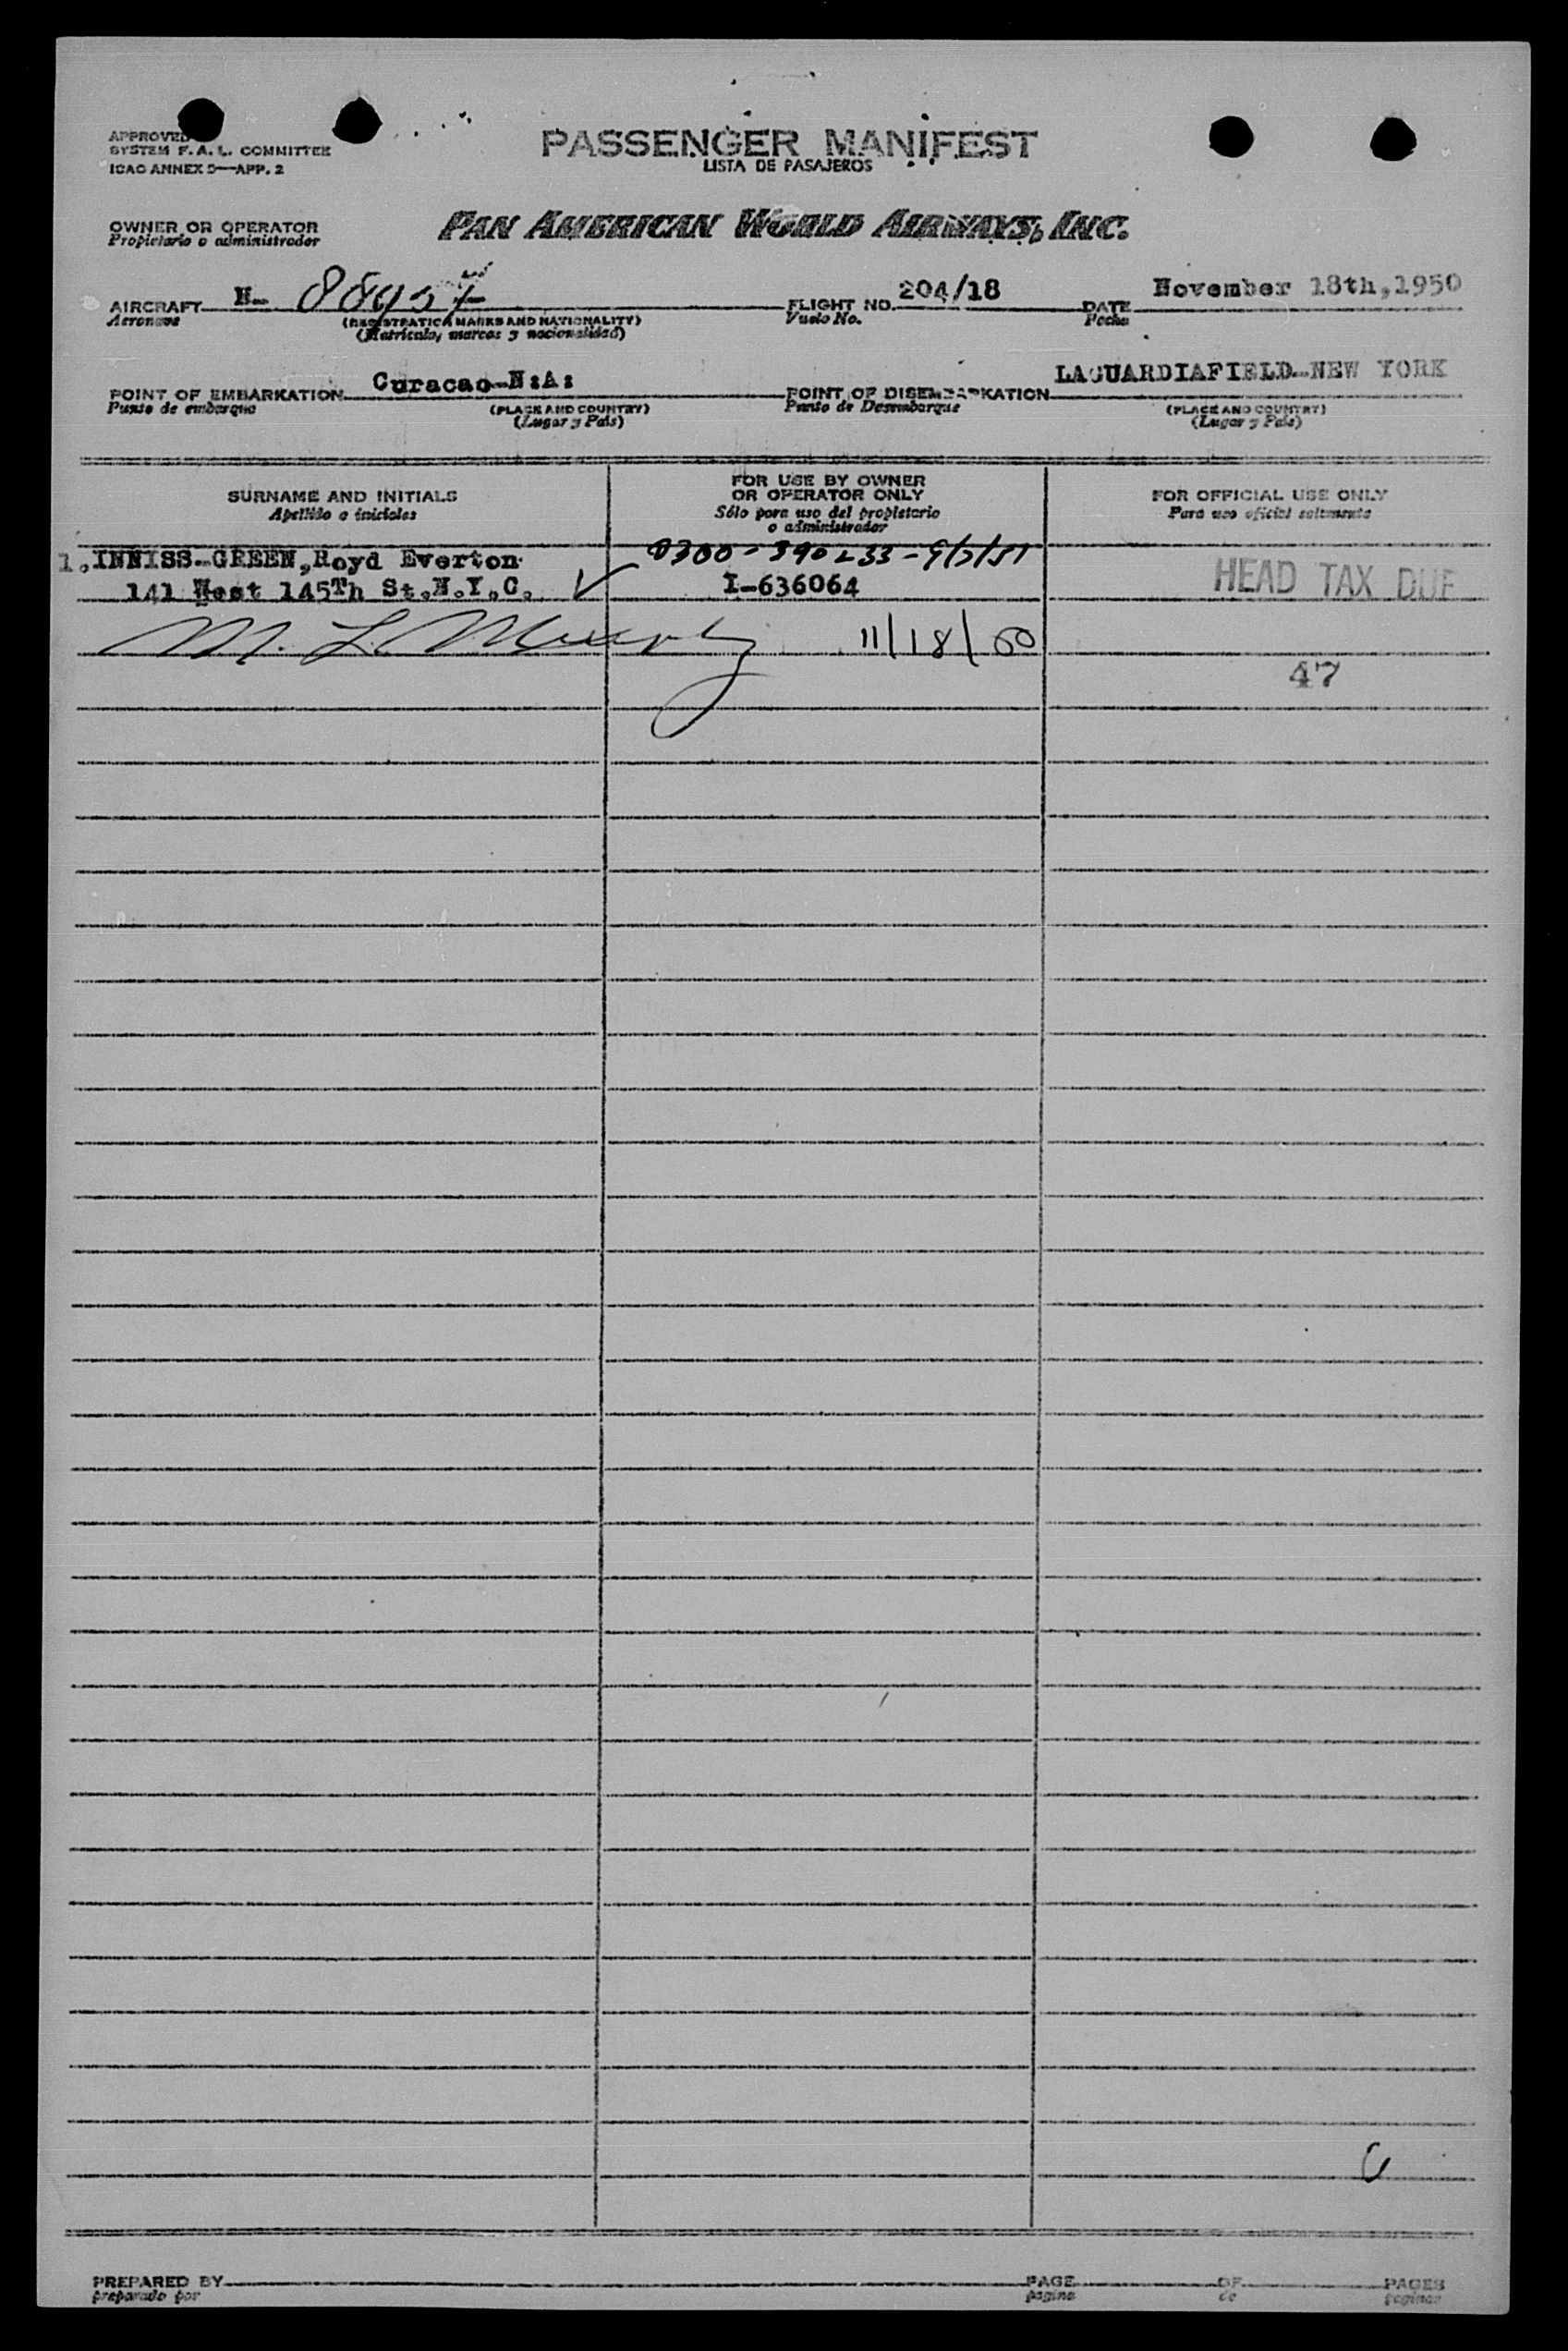 APPROVED
SYSTEM F. A. L. COMMITTEE
ICAO ANNEX 9—APP. 2
PASSENGER MANIFEST
LISTA DE PASAJEROS
OWNER OR OPERATOR
Propietario o administrador
PAN AMERICAN WORLD AIRWAYS, INC.
AIRCRAFT N-
Aeronave
(REGISTRATION MARKS AND NATIONALITY)
(Matrícula, marcas y nacionalidad)
FLIGHT NO. 204/18
Vuelo No.
DATE November 18th,1950
Fecha
POINT OF EMBARKATION Curacao-N:A:
Punto de embarque
(PLACE AND COUNTRY)
(Lugar y País)
POINT OF DISEMBARKATION LAGUARDIAFIELD-NEW YORK
Punto de Desembarque
(PLACE AND COUNTRY)
(Lugar y País)
SURNAME AND INITIALS
Apellido e iniciales
FOR USE BY OWNER
OR OPERATOR ONLY
Sólo para uso del propietario
o administrador
FOR OFFICIAL USE ONLY
Para uso oficial solamente
1.INNISS-GREEN,Royd Everton
0300-390233-9/5/51
141 West 145Th St.N.Y.C. ✓
I-636064
HEAD TAX DUE
M. L. Murphy 11/18/50
47
6
PREPARED BY
preparado por
PAGE OF PAGES
página de páginas